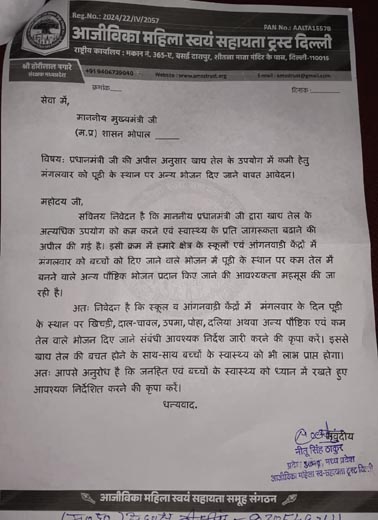 Reg.No.: 2024/22/IV/2057
PAN No.: AALTA1557B
आजीविका महिला स्वयं सहायता ट्रस्ट दिल्ली
राष्ट्रीय कार्यालय : मकान नं. 365-ए, बसई दारापुर, शीतला माता मंदिर के पास, दिल्ली-110015
श्री होरीलाल पगारे
+91 9406739040
Website : www.amsstrust.org
Email : amsstrust@gmail.com
क्रमांक
दिनांक
सेवा में,
माननीय मुख्यमंत्री जी
(म.प्र) शासन भोपाल
विषय: प्रधानमंत्री जी की अपील अनुसार खाद्य तेल के उपयोग में कमी हेतु
मंगलवार को पूड़ी के स्थान पर अन्य भोजन दिए जाने बाबत आवेदन।
महोदय जी,
सविनय निवेदन है कि माननीय प्रधानमंत्री जी द्वारा खाद्य तेल के
अत्यधिक उपयोग को कम करने एवं स्वास्थ्य के प्रति जागरूकता बढ़ाने की
अपील की गई है। इसी क्रम में हमारे क्षेत्र के स्कूलों एवं आंगनवाड़ी केंद्रों में
मंगलवार को बच्चों को दिए जाने वाले भोजन में पूड़ी के स्थान पर कम तेल में
बनने वाले अन्य पौष्टिक भोजन प्रदान किए जाने की आवश्यकता महसूस की जा
रही है।
अतः निवेदन है कि स्कूल व आंगनवाड़ी केंद्रों में मंगलवार के दिन पूड़ी
के स्थान पर खिचड़ी, दाल-चावल, उपमा, पोहा, दलिया अथवा अन्य पौष्टिक एवं कम
तेल वाले भोजन दिए जाने संबंधी आवश्यक निर्देश जारी करने की कृपा करें। इससे
खाद्य तेल की बचत होने के साथ-साथ बच्चों के स्वास्थ्य को भी लाभ प्राप्त होगा।
अतः आपसे अनुरोध है कि जनहित एवं बच्चों के स्वास्थ्य को ध्यान में रखते हुए
आवश्यक निर्देशित करने की कृपा करें।
धन्यवाद.
भवदीय
नीतू सिंह ठाकुर
मध्य प्रदेश
आजीविका महिला स्व-सहायता ट्रस्ट दिल्ली
आजीविका महिला स्वयं सहायता समूह संगठन